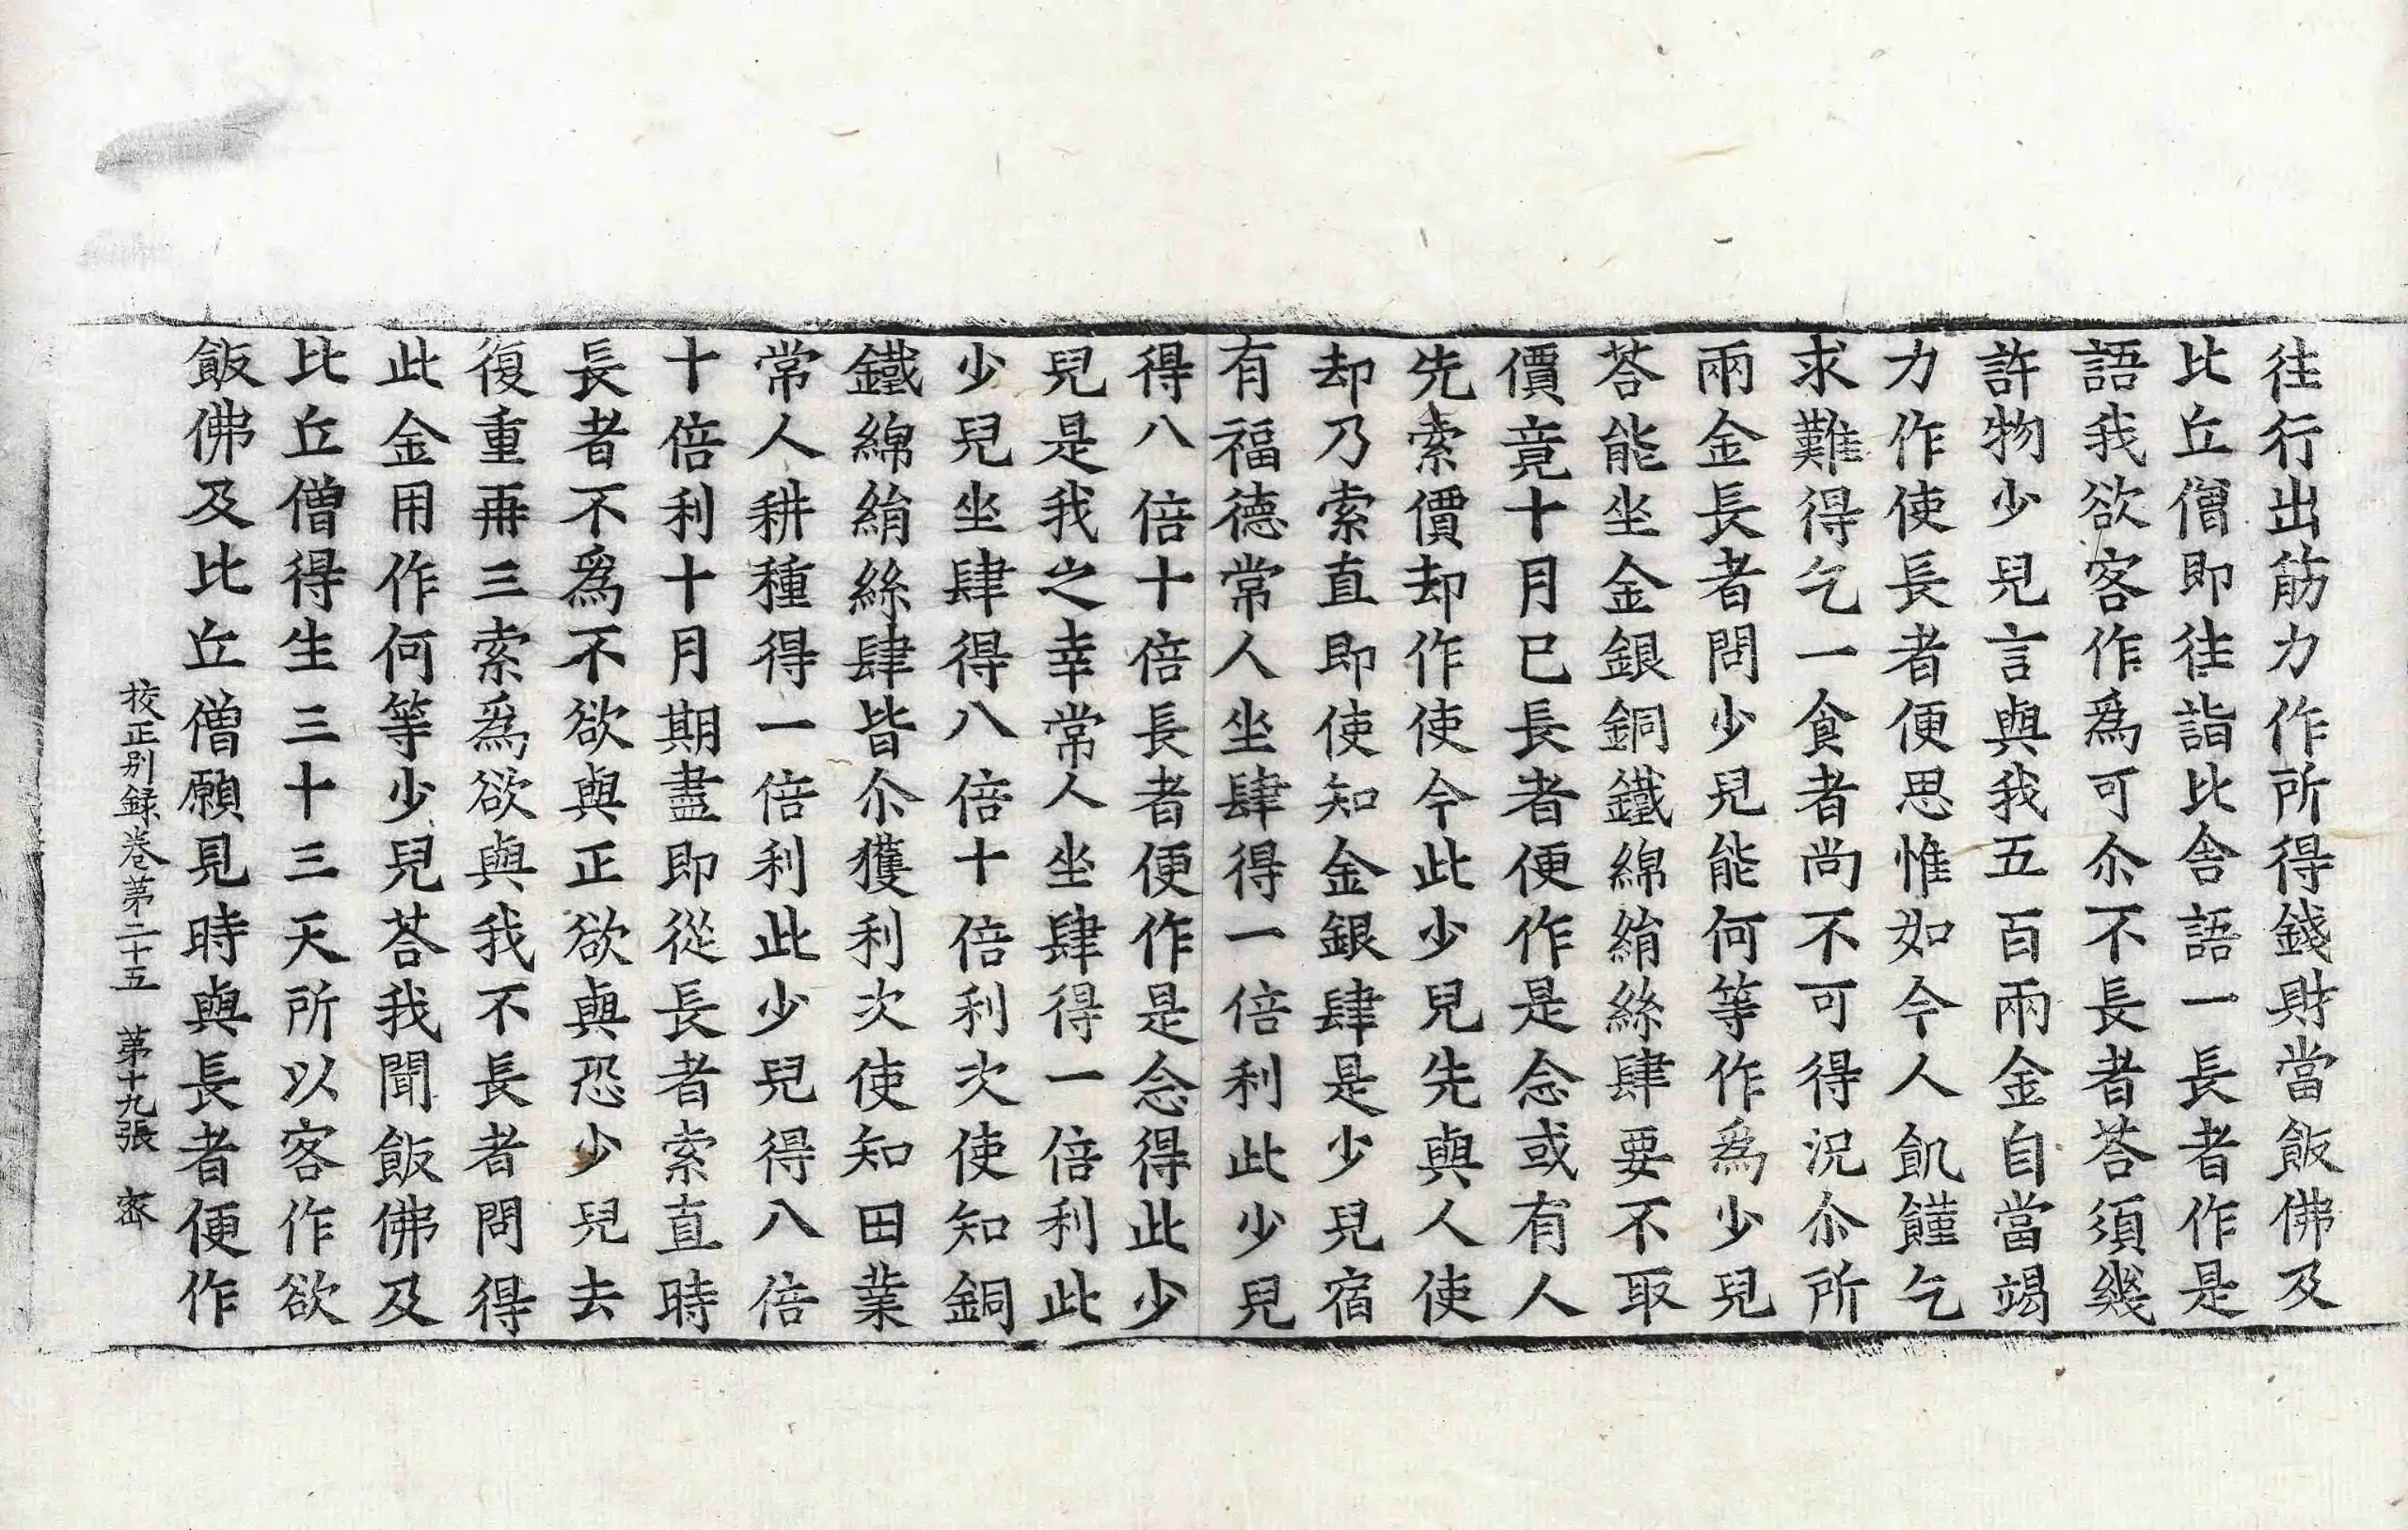 徃行出筋力作所得錢財當飯佛及
比丘僧即徃詣比舍語一長者作是
語我欲客作爲可尒不長者荅須幾
許物少兒言與我五百兩金自當竭
力作使長者便思惟如今人飢饉乞
求難得乞一食者尚不可得况尒所
兩金長者問少兒能何等作爲少兒
荅能坐金銀銅鐵綿絹絲肆要不取
價竟十月已長者便作是念或有人
先索價却作使今此少兒先與人使
却乃索直即使知金銀肆是少兒宿
有福德常人坐肆得一倍利此少兒
得八倍十倍長者便作是念得此少
兒是我之幸常人坐肆得一倍利此
少兒坐肆得八倍十倍利次使知銅
鐵綿絹絲肆皆尒獲利次使知田業
常人耕種得一倍利此少兒得八倍
十倍利十月期盡即從長者索直時
長者不爲不欲與正欲與恐少兒去
復重再三索爲欲與我不長者問得
此金用作何等少兒荅我聞飯佛及
比丘僧得生三十三天所以客作欲
飯佛及比丘僧願見時與長者便作
校正别録卷第二十五 第十九張 宻